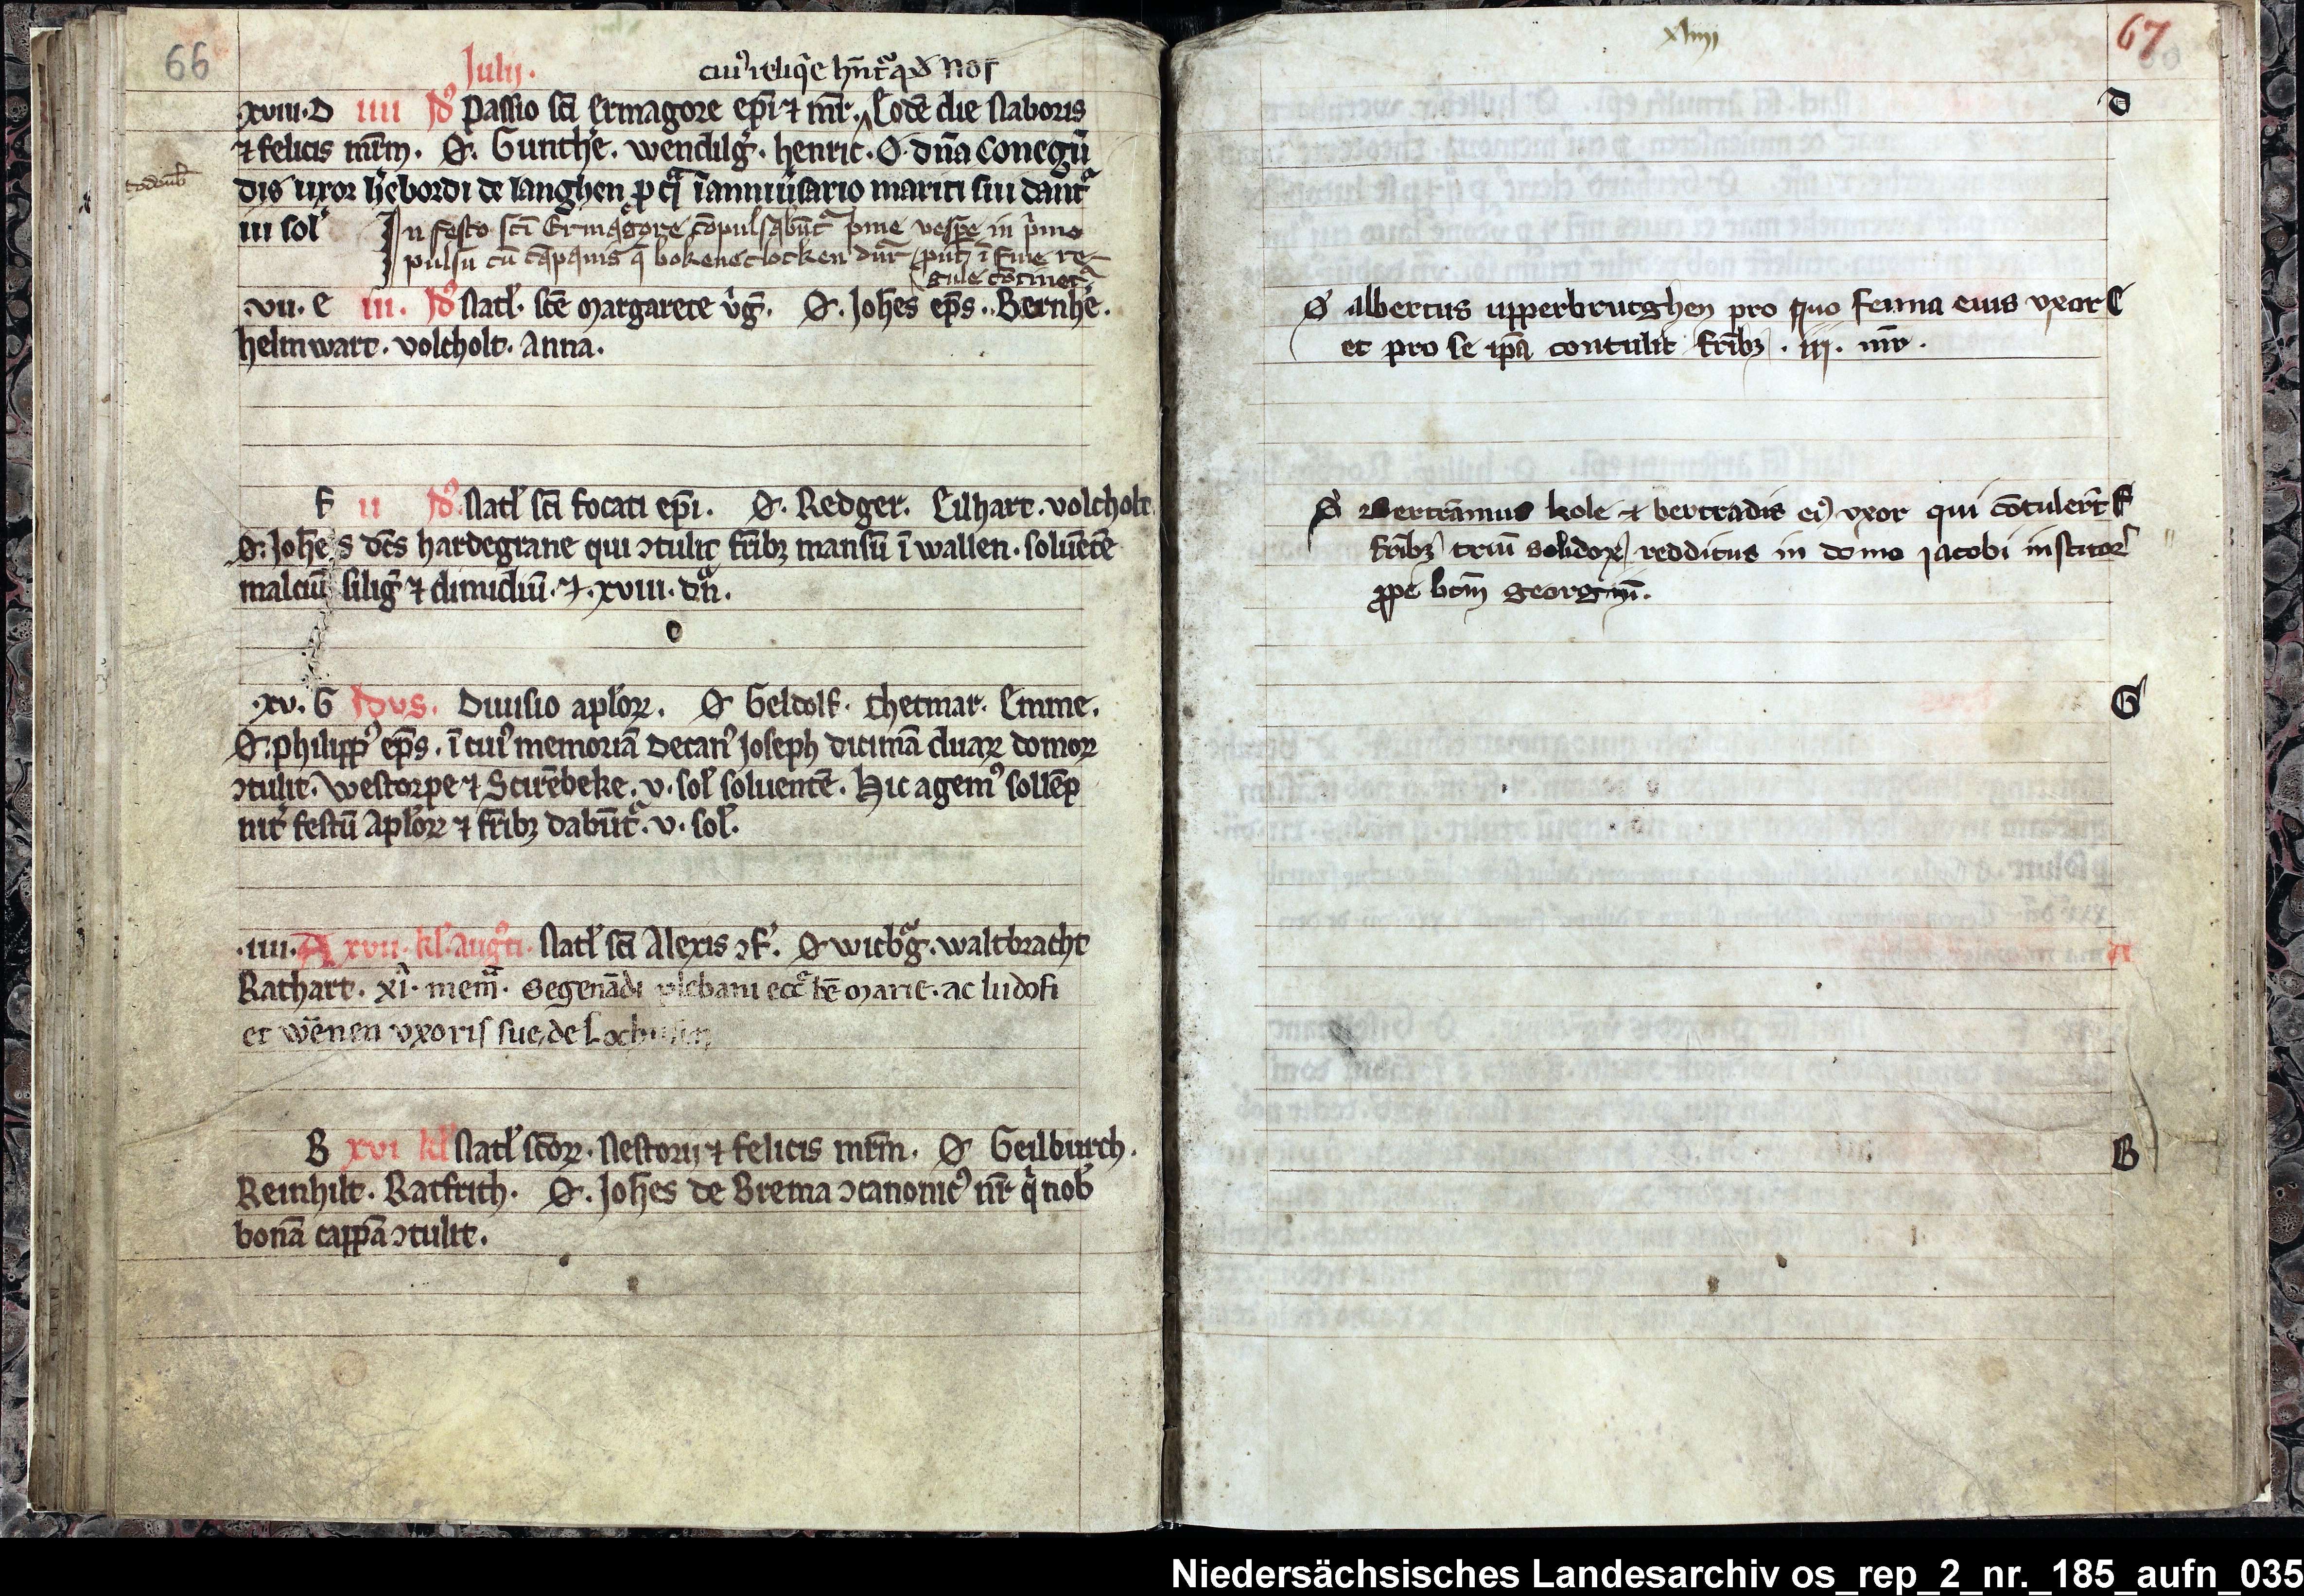 66
Julij.
cui᷒ reliq̄e hn̄t᷒ ap̄d nos
xviii. D iiii Id᷒ Passio sc̄i Ermagore ep̄i ⁊ mr̄. Eodē die Naboris
⁊ felicis mr̄m. O. Gunthe᷒. wendilg᷒. henric. O. dn̄a Conegū
dis uxor h᷒ebordi de langhen p q̄ ī anniu᷒sario mariti sui dant᷒
iii sol᷒
In festo sc̄i Ermagore cōpulsabūt᷒ p̄me vesp̄e in p̄mo
pulsu cū cāpanis q̄ bokeneclocken dn̄r put ī fine re-
gule cōtinet᷒
vii. e iii. Id᷒ Natl᷒ sc̄e Margarete v᷒ḡ. O. Joh̄es ep̄s. Bernhe᷒.
helmwart. volcholt. Anna.
F ii Id᷒ Natl᷒ sc̄i focati ep̄i. O. Redger. Eilhart. volcholt.
O. Joh̄es dc̄s hardegrane qui ꝯtulit fr̄ibꝫ mansū ī wallen. soluētē
malciū silig᷒ ⁊ dimidiū. ⁊. xviii. dn̄.
xv. G Idus. Diuisio aplōꝝ. O Geldolf. thetmar. Emme.
O. philipp᷒ ep̄s. ī cui᷒ memoriā Decan᷒ Joseph dicimā duaꝝ domoꝝ
ꝯtulit. westorpe ⁊ Scirēbeke. v. sol᷒ soluentē. Hic agem᷒ sollēp
nit᷒ festū Aplōꝝ ⁊ fr̄ibꝫ dabūt᷒. v. sol᷒.
.iiii. A xvii. kl᷒. Aug᷒ti. Natl᷒ sc̄i Alexis ꝯf᷒. O wicb᷒g. waltbracht
Rathart. xi. mem̄. Segenādi plebani ecc᷒ bē Marie. ac ludofi
et wēnen vxoris sue de
B xvi kl᷒ Natl᷒ sc̄oꝝ. Nestorij ⁊ felicis mr̄m. O Geilburch.
Reinhilt. Ratfrith. O. Joh̄es de Brema ꝯcanonic᷒ nr̄ q̄ nob᷒
bonā cappā ꝯtulit.
xliiij
67
D
O albertus upperbrucghen pro quo fenna eius vxor E
et pro se ip̄a contulit fr̄ibꝫ. iij. mr̄.
O Bertrammus kole ⁊ bertradis ei᷒ vxor qui cōtulert̄ F
fr̄ibꝫ triū solidoꝝ redditus in domo jacobi institor᷒
ꝓpe btm̄ georgiū.
G
A
B
Niedersächsisches Landesarchiv os_rep_2_nr._185_aufn_035